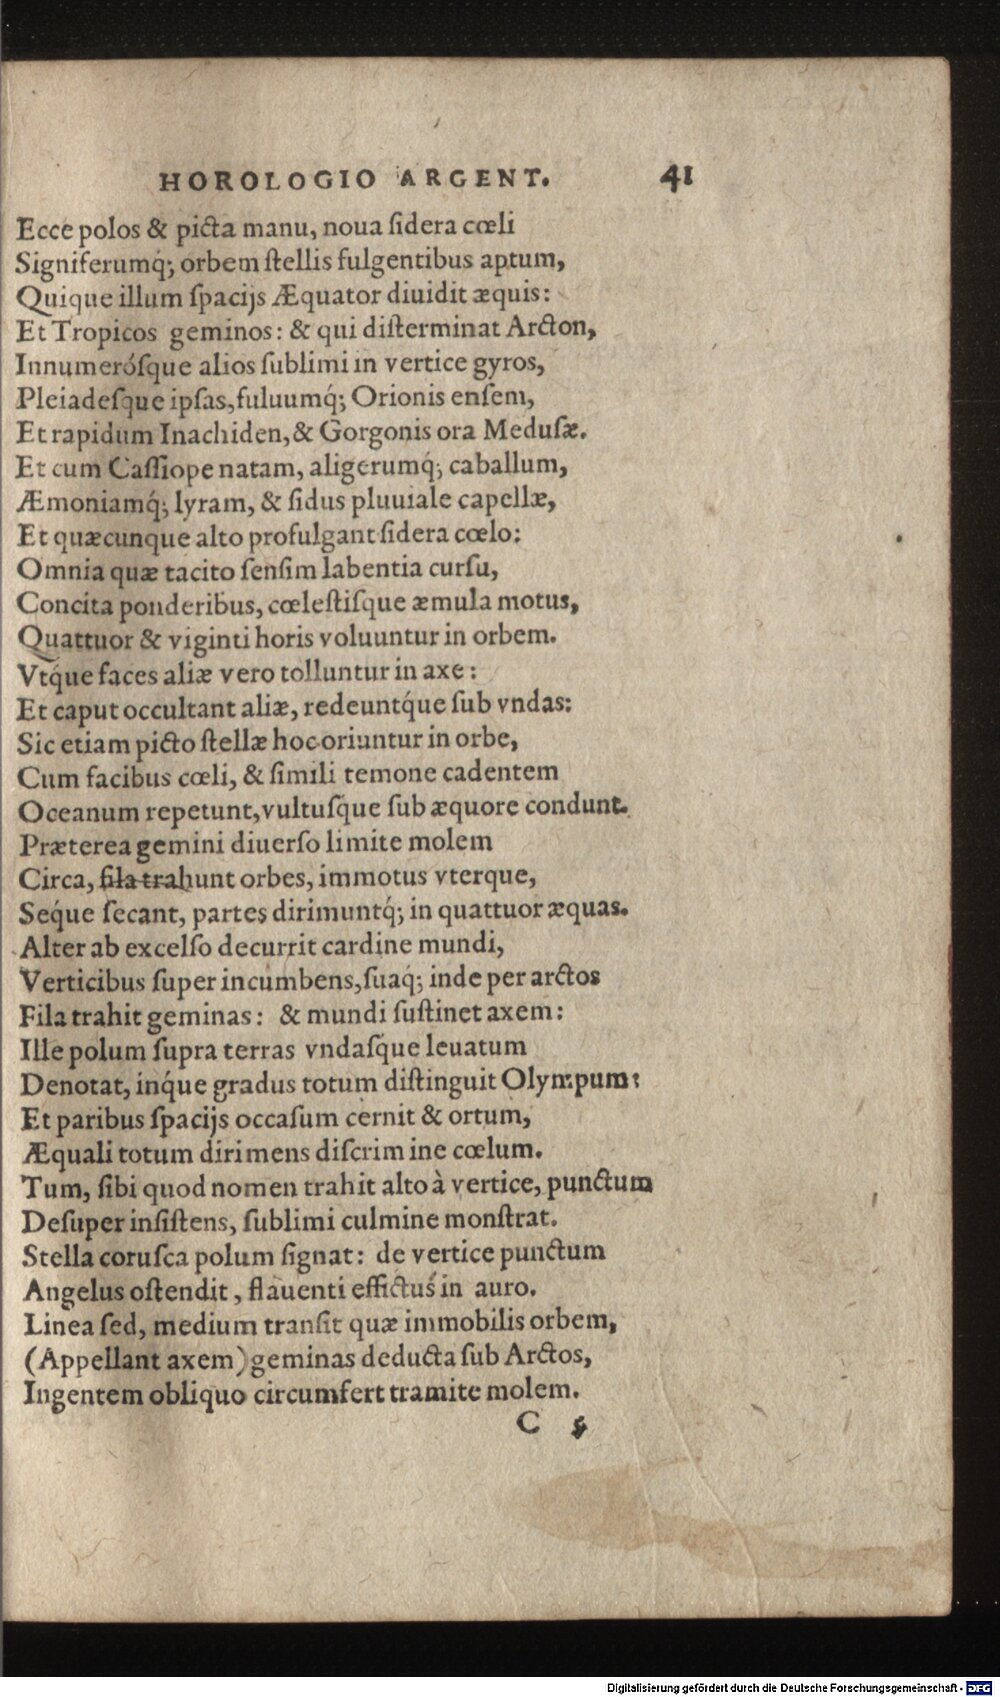 HOROLOGIO ARGENT. 41
Ecce polos & picta manu, noua ſidera cœli
Signiferumq́; orbem ſtellis fulgentibus aptum,
Quique illum ſpacijs Æquator diuidit æquis:
Et Tropicos geminos: & qui diſterminat Arcton,
Innumeróſque alios ſublimi in vertice gyros,
Pleiadeſque ipſas, fuluumq́; Orionis enſem,
Et rapidum Inachiden, & Gorgonis ora Meduſæ.
Et cum Caſſiope natam, aligerumq́; caballum,
Æmoniamq́; lyram, & ſidus pluuiale capellæ,
Et quæcunque alto profulgant ſidera cœlo:
Omnia quæ tacito ſenſim labentia curſu,
Concita ponderibus, cœleſtiſque æmula motus,
Quattuor & viginti horis voluuntur in orbem.
Vtq́ue faces aliæ vero tolluntur in axe:
Et caput occultant aliæ, redeuntq́ue ſub vndas:
Sic etiam picto ſtellæ hoc oriuntur in orbe,
Cum facibus cœli, & ſimili temone cadentem
Oceanum repetunt, vultuſq́ue ſub æquore condunt.
Præterea gemini diuerſo limite molem
Circa, fila trahunt orbes, immotus vterque,
Seq́ue ſecant, partes dirimuntq́; in quattuor æquas.
Alter ab excelſo decurrit cardine mundi,
Verticibus ſuper incumbens, ſuaq́; inde per arctos
Fila trahit geminas: & mundi ſuſtinet axem:
Ille polum ſupra terras vndaſq́ue leuatum
Denotat, inq́ue gradus totum diſtinguit Olympum:
Et paribus ſpacijs occaſum cernit & ortum,
Æquali totum dirimens diſcrimine cœlum.
Tum, ſibi quod nomen trahit alto à vertice, punctum
Deſuper inſiſtens, ſublimi culmine monſtrat.
Stella coruſca polum ſignat: de vertice punctum
Angelus oſtendit, flauenti effictus in auro.
Linea ſed, medium tranſit quæ immobilis orbem,
(Appellant axem) geminas deducta ſub Arctos,
Ingentem obliquo circumfert tramite molem.
C 5
Digitalisierung gefördert durch die Deutsche Forschungsgemeinschaft - DFG